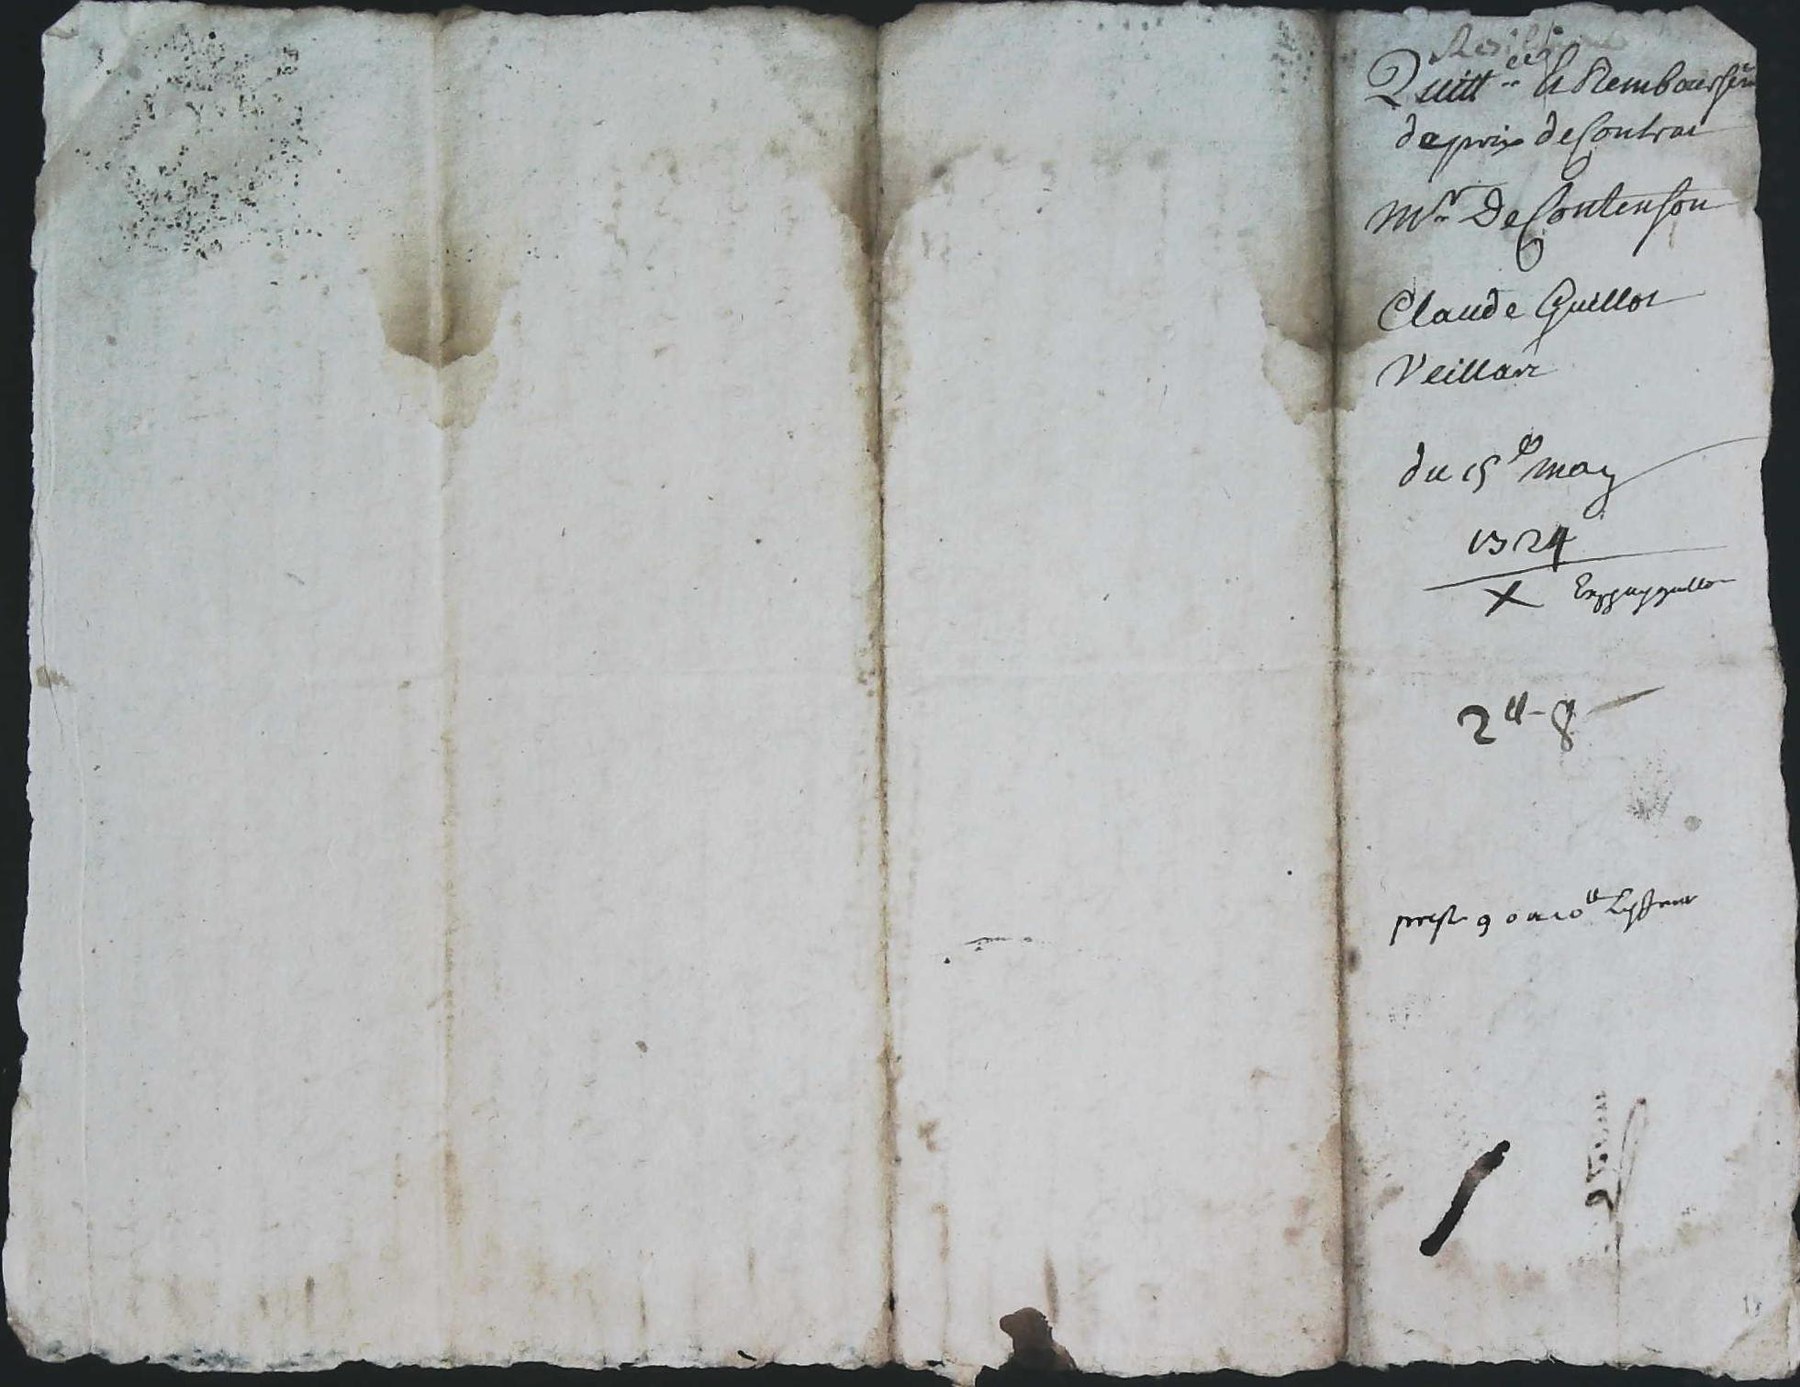 Quitt.ce & Remboursem
de prix de Contrat
Mr De Contenson
Claude Guillot
Veillard
du 15e may
1724
X
2ll - 8